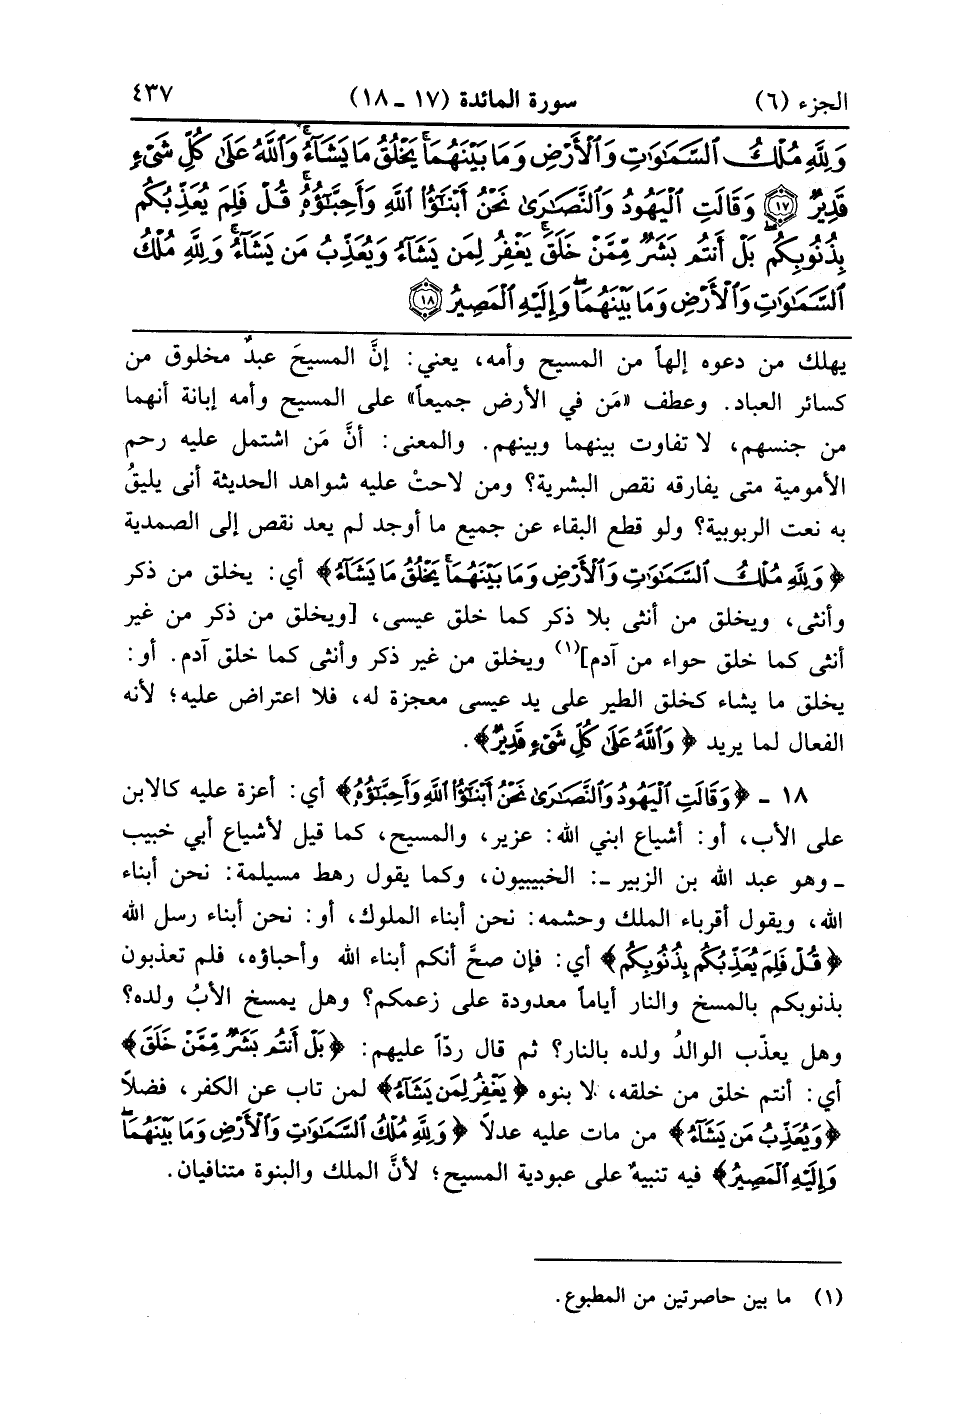 الجزء (٦) سورة المائدة (١٧ ـ ١٨) ٤٣٧
وَلِلَّهِ مُلْكُ السَّمَاوَاتِ وَالْأَرْضِ وَمَا بَيْنَهُمَا ۚ يَخْلُقُ مَا يَشَاءُ ۚ وَاللَّهُ عَلَىٰ كُلِّ شَيْءٍ
قَدِيرٌ ١٧ وَقَالَتِ الْيَهُودُ وَالنَّصَارَىٰ نَحْنُ أَبْنَاءُ اللَّهِ وَأَحِبَّاؤُهُ ۚ قُلْ فَلِمَ يُعَذِّبُكُم
بِذُنُوبِكُم ۖ بَلْ أَنتُم بَشَرٌ مِّمَّنْ خَلَقَ ۚ يَغْفِرُ لِمَن يَشَاءُ وَيُعَذِّبُ مَن يَشَاءُ ۚ وَلِلَّهِ مُلْكُ
السَّمَاوَاتِ وَالْأَرْضِ وَمَا بَيْنَهُمَا ۖ وَإِلَيْهِ الْمَصِيرُ ١٨
يهلك من دعوه إلهاً من المسيح وأمه، يعني: إنَّ المسيحَ عبدٌ مخلوق من
كسائر العباد. وعطف «مَن في الأرض جميعاً» على المسيح وأمه إبانة أنهما
من جنسهم، لا تفاوت بينهما وبينهم. والمعنى: أنَّ مَن اشتمل عليه رحم
الأمومية متى يفارقه نقص البشرية؟ ومن لاحتْ عليه شواهد الحديثة أنى يليقُ
به نعت الربوبية؟ ولو قطع البقاء عن جميع ما أوجد لم يعد نقص إلى الصمدية
﴿وَلِلَّهِ مُلْكُ السَّمَاوَاتِ وَالْأَرْضِ وَمَا بَيْنَهُمَا ۚ يَخْلُقُ مَا يَشَاءُ﴾ أي: يخلق من ذكر
وأنثى، ويخلق من أنثى بلا ذكر كما خلق عيسى، [ويخلق من ذكر من غير
أنثى كما خلق حواء من آدم](١) ويخلق من غير ذكر وأنثى كما خلق آدم. أو:
يخلق ما يشاء كخلق الطير على يد عيسى معجزة له، فلا اعتراض عليه؛ لأنه
الفعال لما يريد ﴿وَاللَّهُ عَلَىٰ كُلِّ شَيْءٍ قَدِيرٌ﴾.
١٨ ـ ﴿وَقَالَتِ الْيَهُودُ وَالنَّصَارَىٰ نَحْنُ أَبْنَاءُ اللَّهِ وَأَحِبَّاؤُهُ﴾ أي: أعزة عليه كالابن
على الأب، أو: أشياع ابني الله: عزير، والمسيح، كما قيل لأشياع أبي خبيب
ـ وهو عبد الله بن الزبير ـ: الخبيبيون، وكما يقول رهط مسيلمة: نحن أبناء
الله، ويقول أقرباء الملك وحشمه: نحن أبناء الملوك، أو: نحن أبناء رسل الله
﴿قُلْ فَلِمَ يُعَذِّبُكُم بِذُنُوبِكُم﴾ أي: فإن صحَّ أنكم أبناء الله وأحباؤه، فلم تعذبون
بذنوبكم بالمسخ والنار أياماً معدودة على زعمكم؟ وهل يمسخ الأبُ ولده؟
وهل يعذّب الوالدُ ولده بالنار؟ ثم قال ردّاً عليهم: ﴿بَلْ أَنتُم بَشَرٌ مِّمَّنْ خَلَقَ﴾
أي: أنتم خلق من خلقه، لا بنوه ﴿يَغْفِرُ لِمَن يَشَاءُ﴾ لمن تاب عن الكفر، فضلاً
﴿وَيُعَذِّبُ مَن يَشَاءُ﴾ من مات عليه عدلاً ﴿وَلِلَّهِ مُلْكُ السَّمَاوَاتِ وَالْأَرْضِ وَمَا بَيْنَهُمَا ۖ
وَإِلَيْهِ الْمَصِيرُ﴾ فيه تنبيهٌ على عبودية المسيح؛ لأنَّ الملك والبنوة متنافيان.
(١) ما بين حاصرتين من المطبوع.